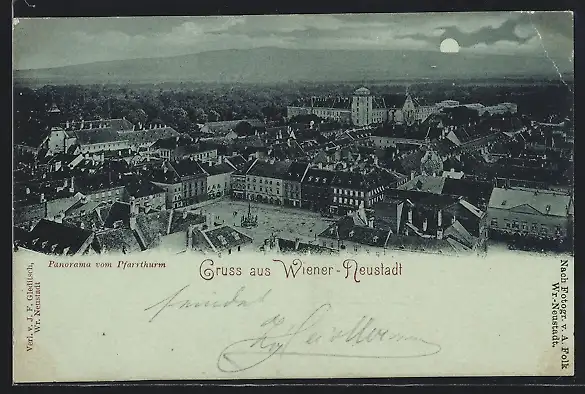 Panorama vom Pfarrthurm
Gruss aus Wiener-Neustadt
Verl. v. J. F. Gleditsch,
Wr. Neustadt
Nach Fotogr. v. A. Folk
Wr.-Neustadt.